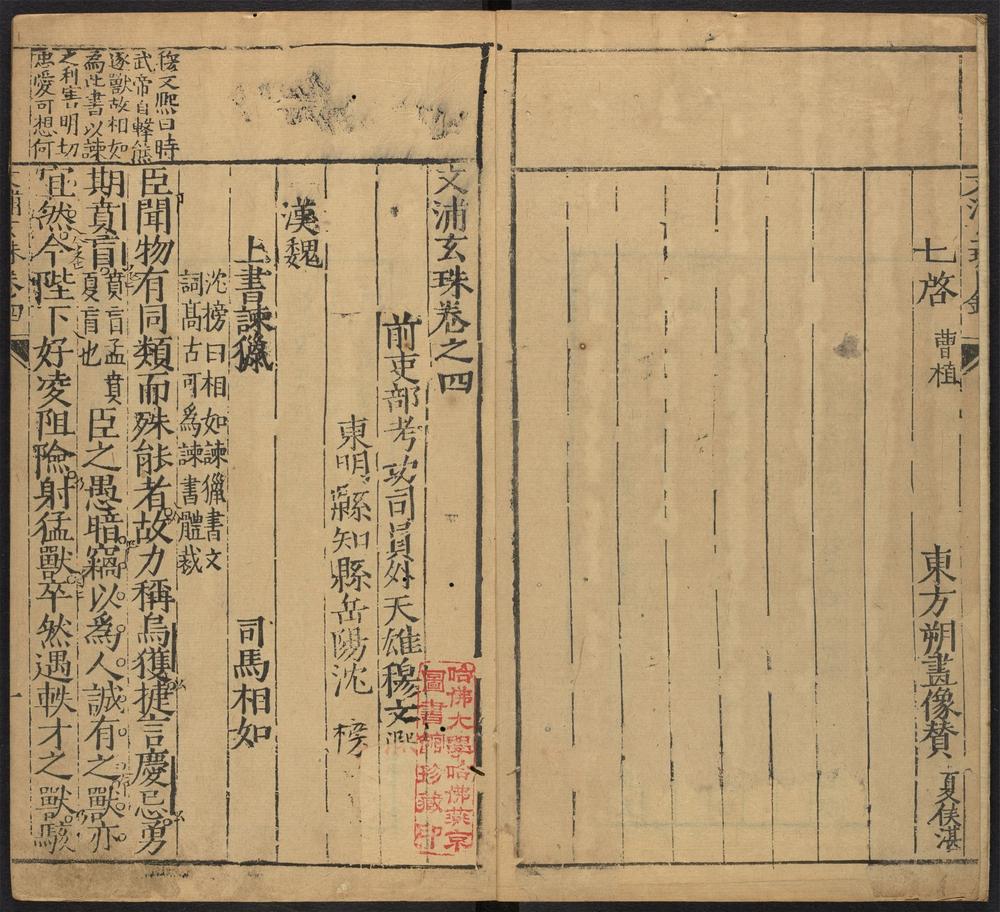 七啓 曹植 東方朔畫像贊 夏侯湛
文浦玄珠卷之四
前吏部考功司員外天雄穆文熙
東明縣知縣岳陽沈 榜
漢魏
上書諫獵 司馬相如
沈榜曰相如諫獵書文
詞髙古可爲諫書體裁
臣聞物有同類而殊能者故力稱烏獲捷言慶忌勇
期賁育賁言孟賁
夏育也臣之愚暗竊以爲人誠有之獸亦
宜然今陛下好凌阻險射猛獸卒然遇軼才之獸駭
穆文熙曰時
武帝自擊熊
逐獸故相如
爲此書以諫
之利害明切
忠愛可想何
哈佛大學哈佛燕京
圖書館珍藏印